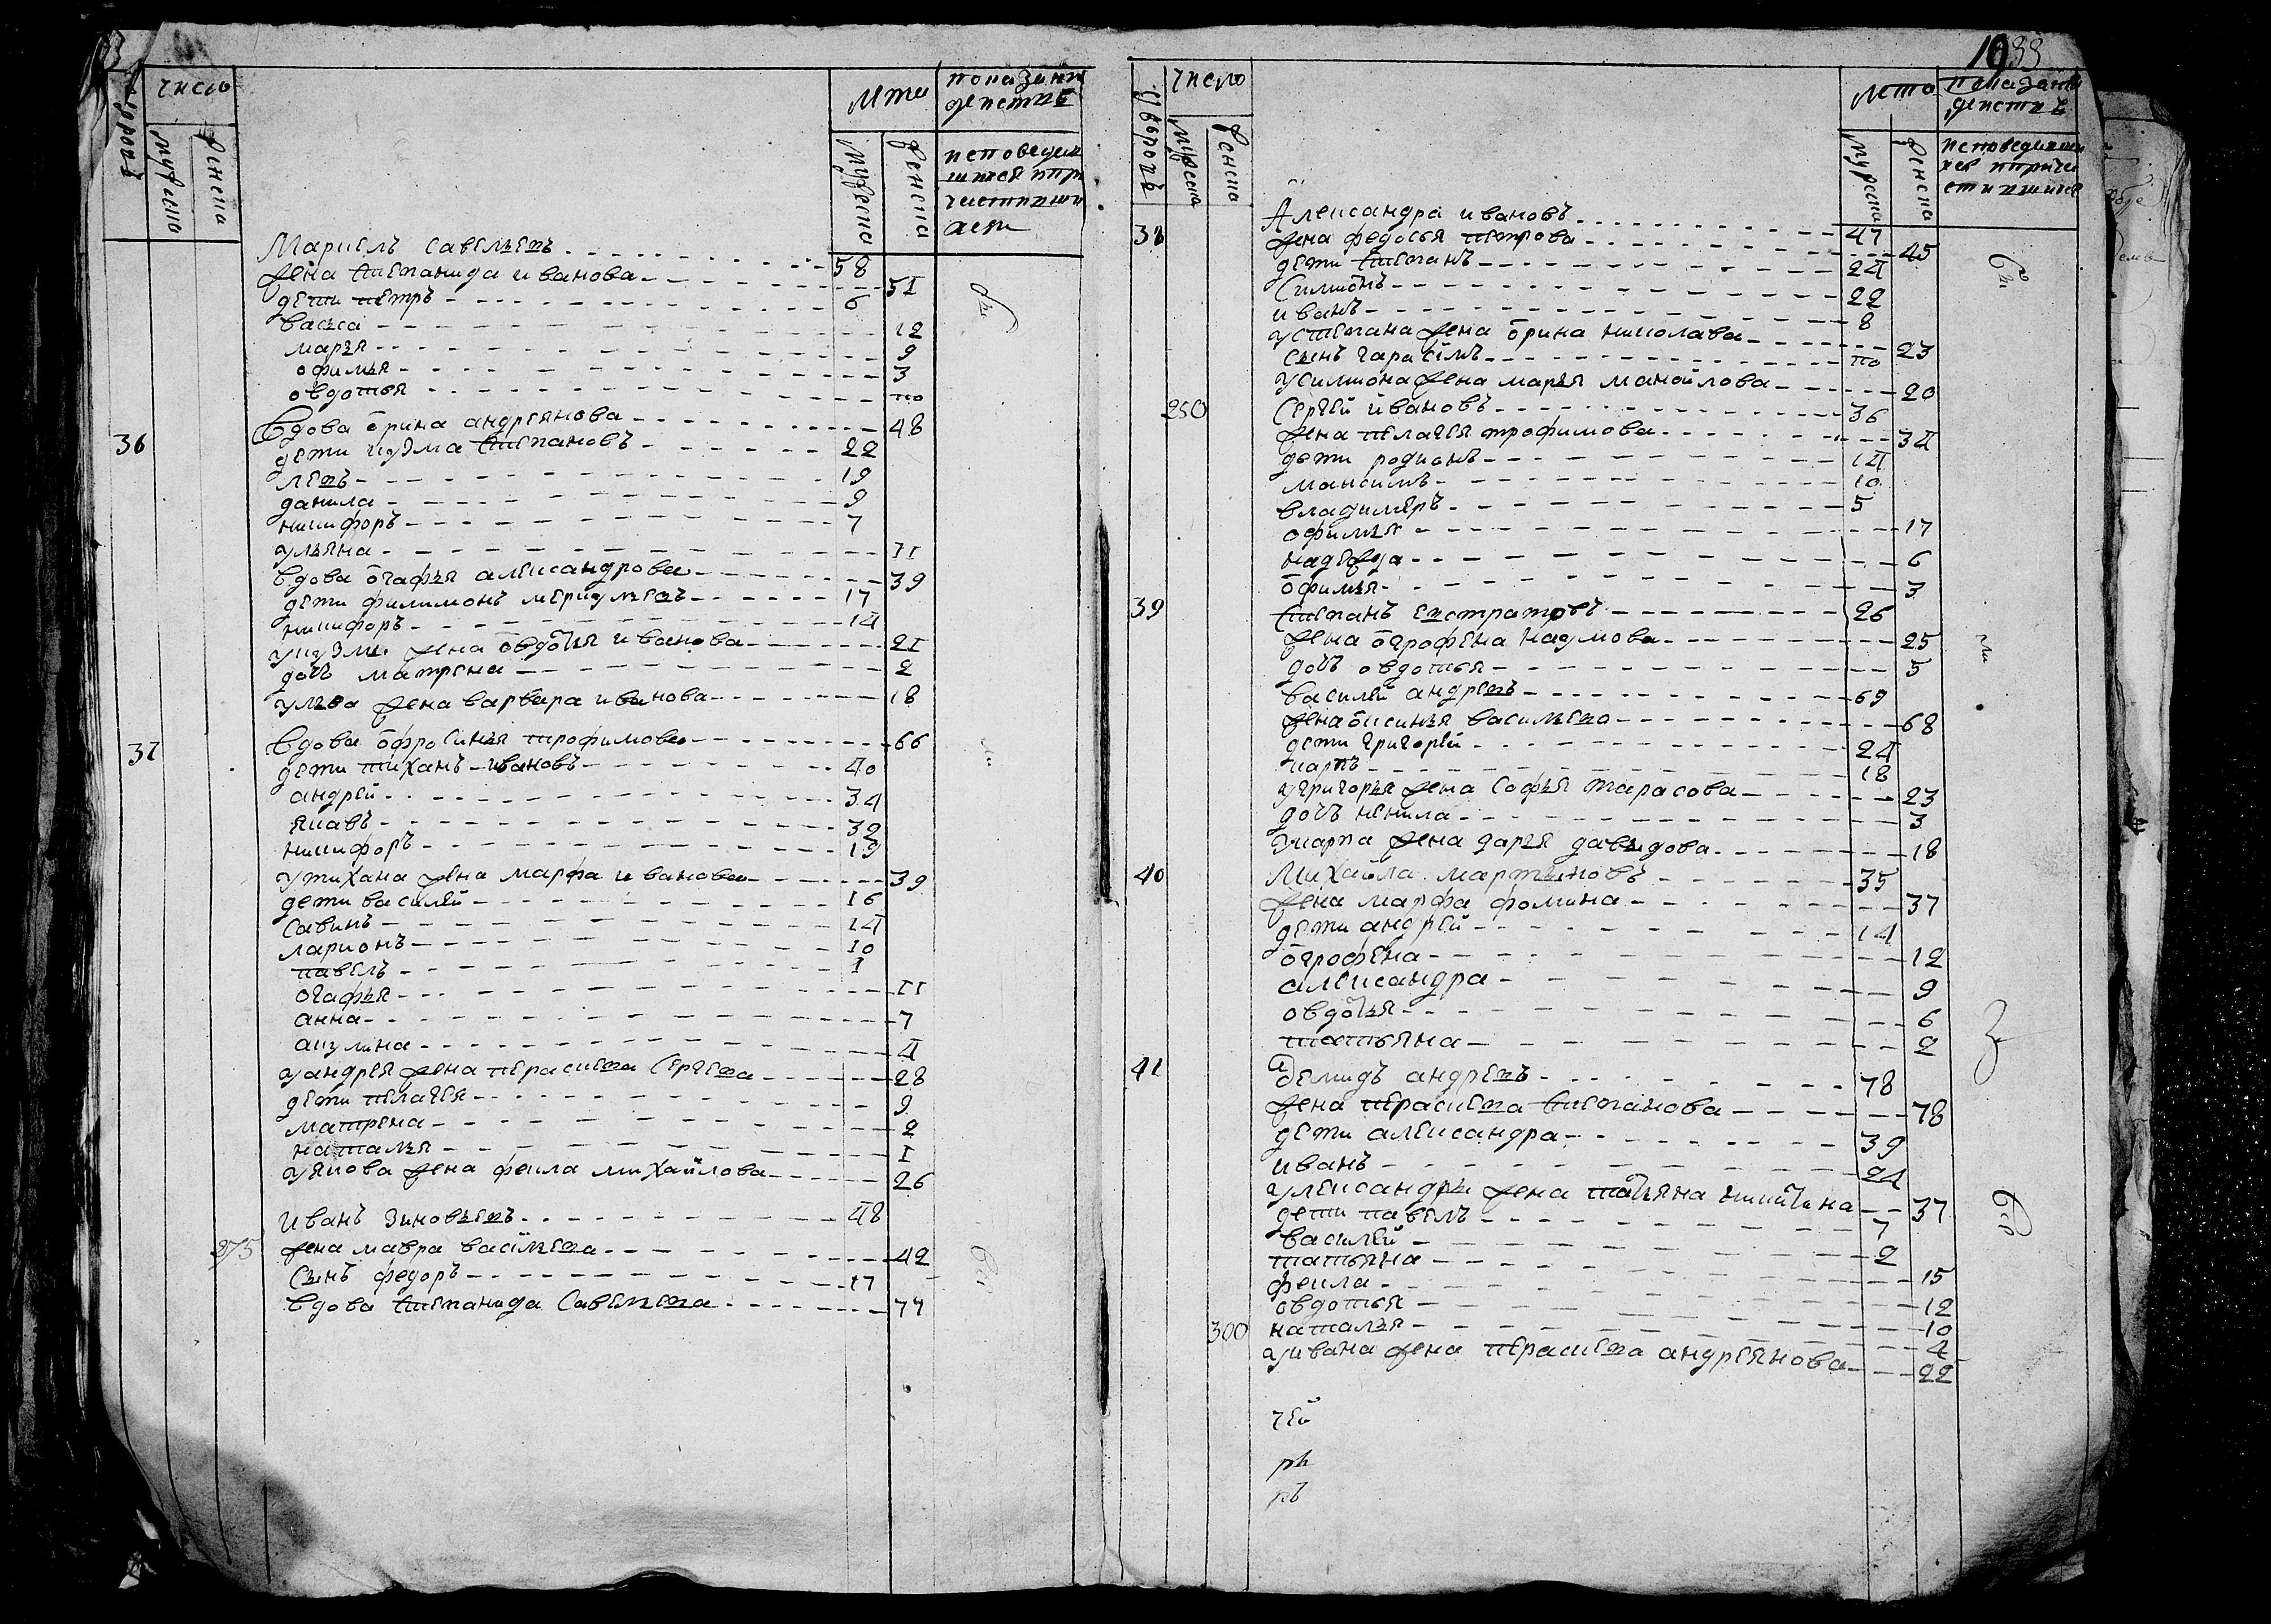 число
мужеско
женска
Лета
показани действ
мужеска
женска
исповедав
шихся при
частивши
хся
Маркелъ Савельевъ 58
жена Степанида иванова 51
дети петръ 6
васса 12
марья 9
офимья 3
овдотья по
36 Вдова орина андреянова 48
дети кузма Степановъ 22
левъ 19
данила 9
никифоръ 7
ульяна 11
Вдова огафья александрова 39
дети филимонъ меркульевъ 17
никифоръ 14
укузмы жена овдотья иванова 21
дочь матрена 2
ульва жена варвара иванова 18
37 Вдова офросинья трофимова 66
дети тиханъ ивановъ 40
андрей 34
яковъ 32
никифоръ 19
утихана жена марфа иванова 39
дети василей 16
Савинъ 14
ларионъ 10
павелъ 1
огафья 11
анна 7
акулина 4
уандрея жена перасковья Сергеева 28
дети пелагея 9
матрена 2
наталья 1
уякова жена фекла михайлова 26
иванъ зиновьевъ 48
275 жена мавра васильева 42
Сынъ федоръ 17
вдова Степанида Савельева 77
1033
число
мужеска
женска
лета
показани
действъ
мужеска
женска
исповедавши
хся причи
стившихся
38 Александра ивановъ 47
жена федосья петрова 45
дети Степанъ 24
Симионъ 22
иванъ 8
устепана жена орина николава 23
Сынъ гарасимъ по
усимиона жена марья манойлова 20
250 Сергей ивановъ 36
жена пелагея трофимова 34
дети родионъ 14
максимъ 10
владимеръ 5
офимья 17
надежда 6
офимья 3
39 Степанъ Евстратовъ 26
жена огрофена наумова 25
дочь овдотья 5
василей андреевъ 69
жена оксинья васильева 68
дети григорей 24
карпъ 18
угригорья жена Софья тарасова 23
дочь ненила 3
укарпа жена дарья давыдова 18
40 Михайла мартыновъ 35
жена марфа фомина 37
дети андрей 14
огрофена 12
александра 9
овдотья 6
татьяна 2
41 Демидъ андреевъ 78
жена перасковья Степанова 78
дети александра 39
иванъ 24
улександры жена татьяна никитина 37
дети павелъ 7
василей 2
татьяна 15
фекла 12
овдотья 10
300 наталья 4
уивана жена перасковья андреянова 22
гей
рь
ръ